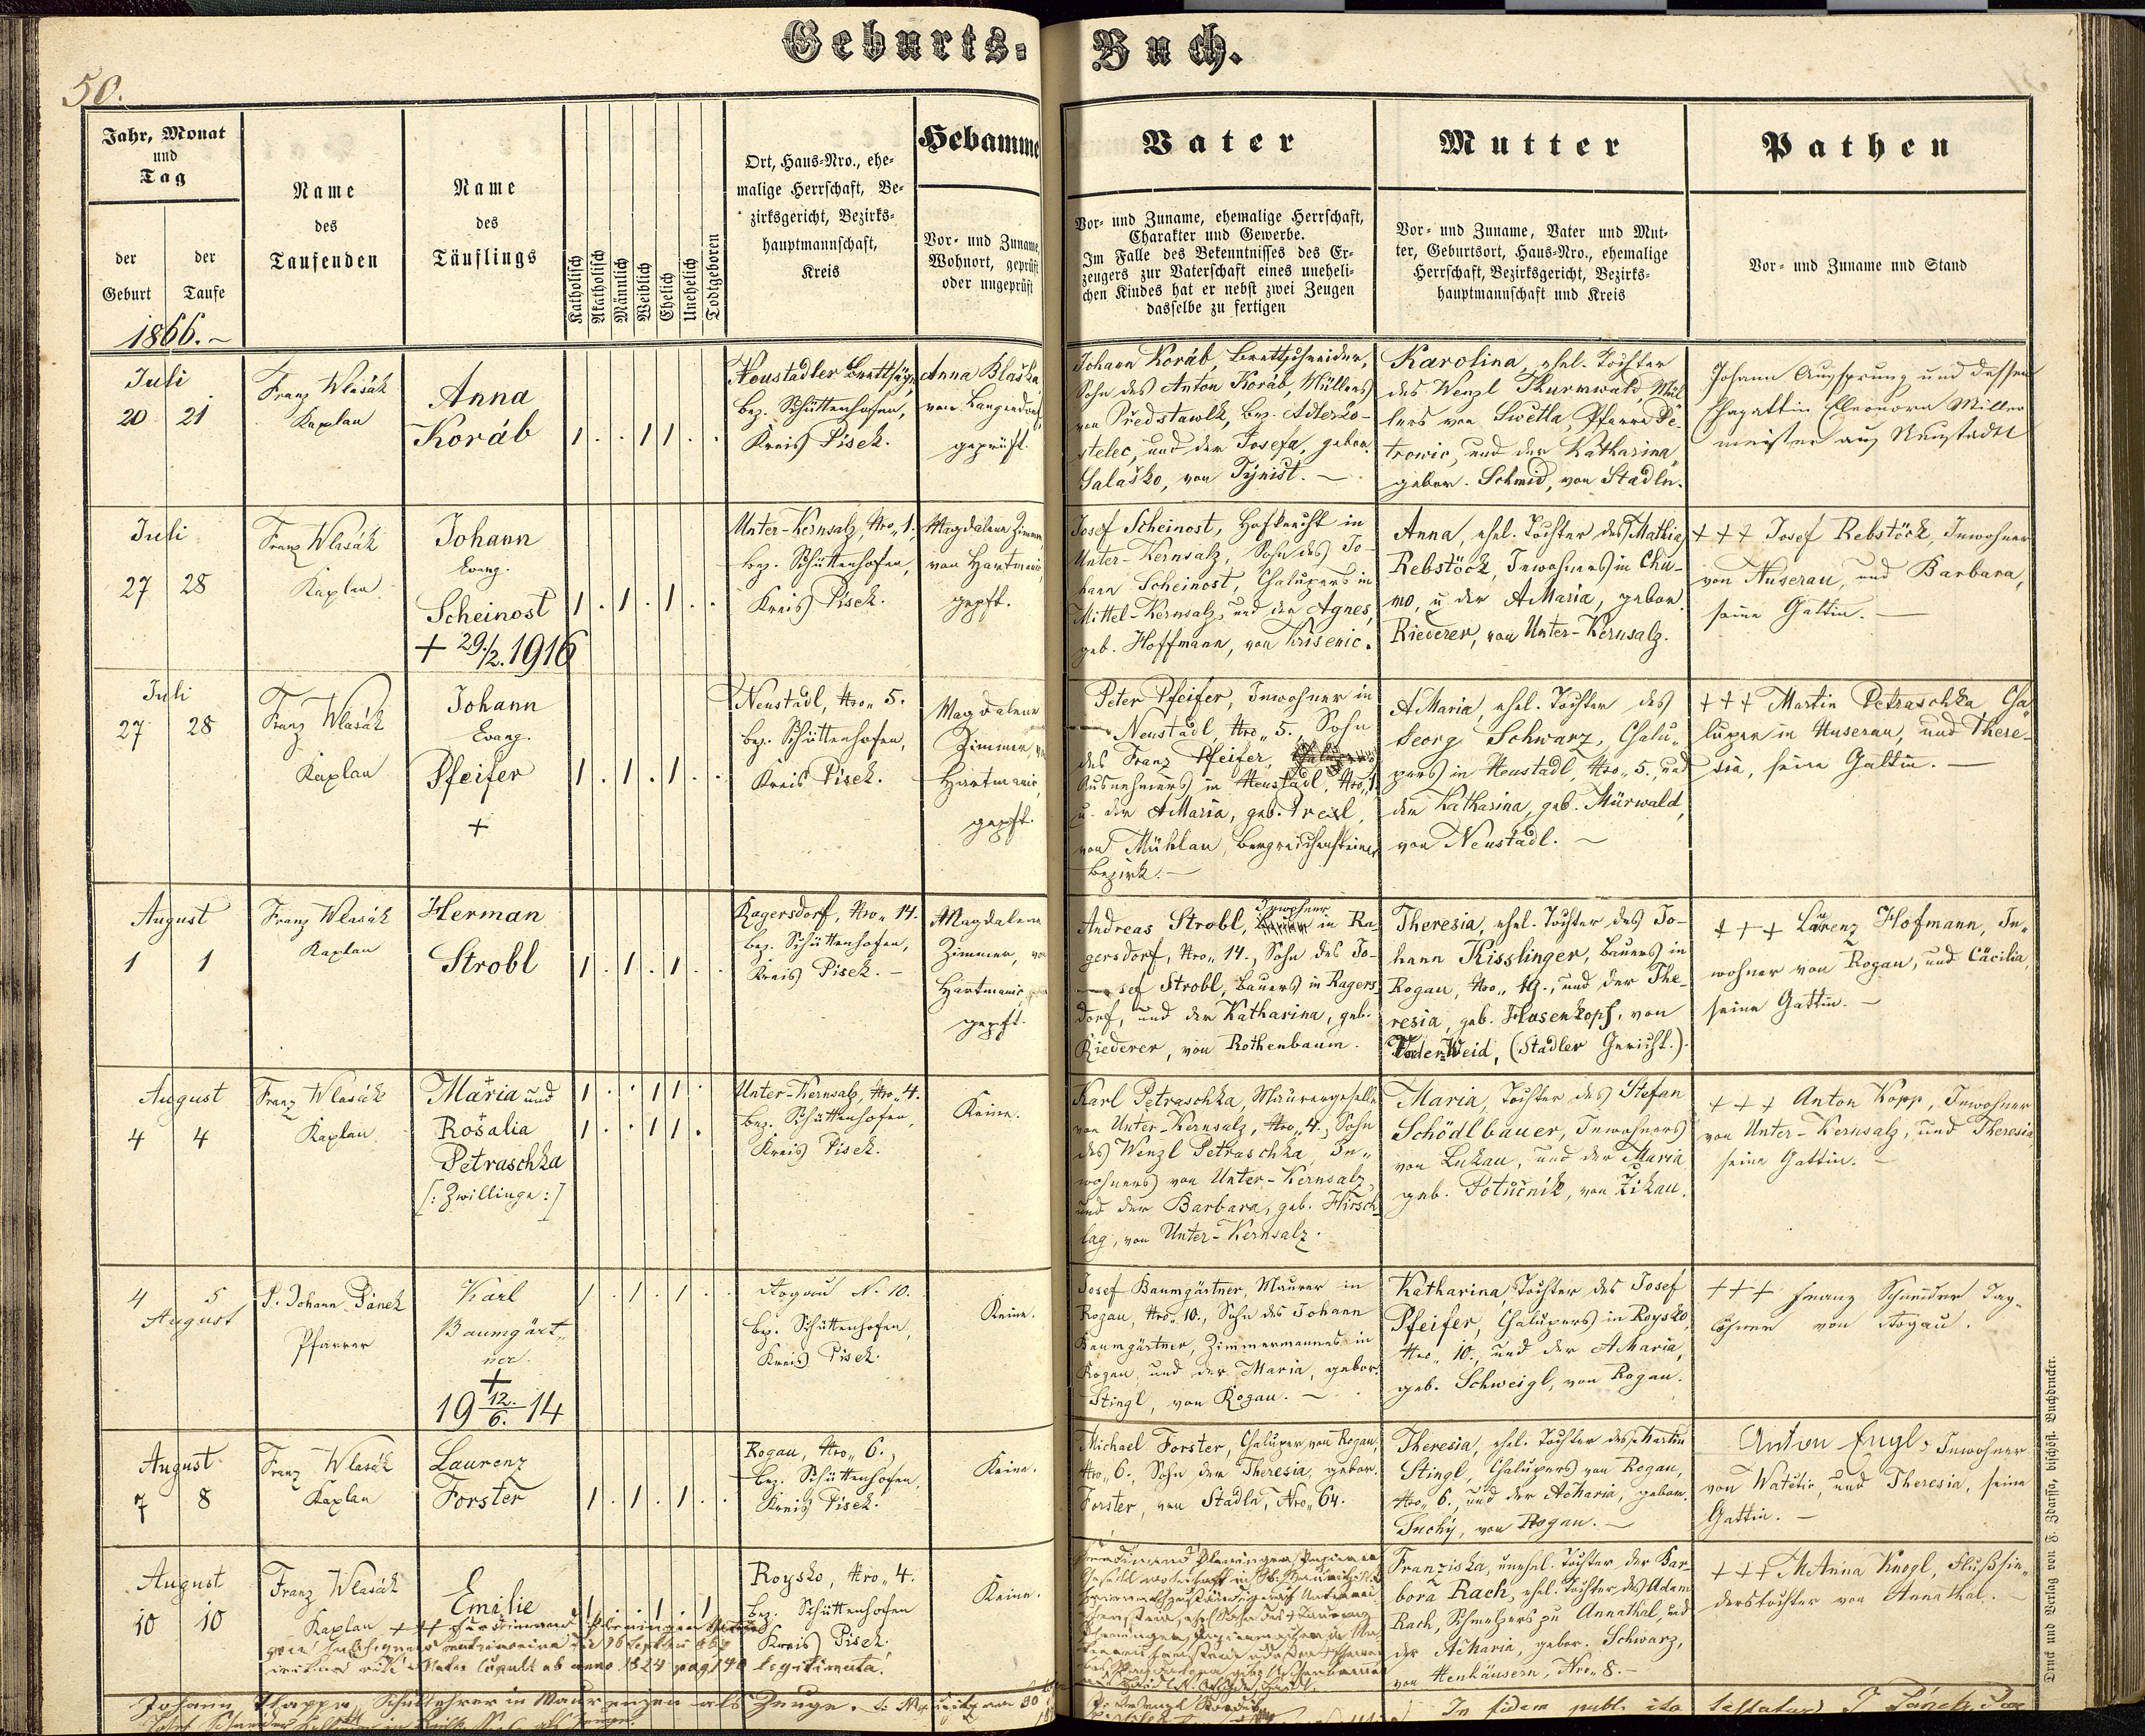 Geburts- Buch.
50.
Jahr, Monat
und
Tag
der
Geburt
der
Taufe
1866.
Name
des
Taufenden
Name
des
Täuflings
Katholisch
Akatholisch
Männlich
Weiblich
Ehelich
Unehelich
Todtgeboren
Ort, Haus-Nro., ehe-
malige Herrschaft, Be-
zirksgericht, Bezirks-
hauptmannschaft,
Kreis
Hebamme
Vor- und Zuname,
Wohnort, geprüft
oder ungeprüft
Vater
Vor- und Zuname, ehemalige Herrschaft,
Charakter und Gewerbe.
Im Falle des Bekenntnisses des Er-
zeugers zur Vaterschaft eines uneheli-
chen Kindes hat er nebst zwei Zeugen
dasselbe zu fertigen
Mutter
Vor- und Zuname, Vater und Mut-
ter, Geburtsort, Haus-Nro., ehemalige
Herrschaft, Bezirksgericht, Bezirks-
hauptmannschaft und Kreis
Pathen
Vor- und Zuname und Stand
Juli
20 21
Franz Wlasák
Kaplan
Anna
Koráb
1 . . 1 1 . .
Neustadler Brettsäge,
bez. Schüttenhofen,
Kreis Pisek.
Anna Blaška
von Langendorf,
geprüft.
Johann Koráb, Brettschneider,
Sohn des Anton Koráb, Müllers
von Předstawlk, bez. Adlerko-
stelec, und der Josefa, gebor.
Salaško, von Tynist. —
Karolina, ehel. Tochter
des Wenzl Thurnwald, Mül-
lers von Swětla, Pfarre Pe-
trowic, und der Katharina
gebor. Schmid, von Stadln.
Johann Augsprung und dessen
Ehegattin Eleonora Müller
meister aus Neustadtl
Juli
27 28
Franz Wlasák
Kaplan
Johann
Evang.
Scheinost
+ 29/2. 1916
1 . 1 . 1 . .
Unter-Kernsalz, Nro. 1.
bez. Schüttenhofen,
Kreis Pisek.
Magdalena Zimmer,
von Hartmanic,
gepft.
Josef Scheinost, Hofknecht in
Unter-Kernsalz, Sohn des Jo-
hann Scheinost, Chalupers in
Mittel-Kernsalz, und der Agnes,
geb. Hoffmann, von Krisenic.
Anna, ehel. Tochter des Mathia
Rebstöck, Inwohners in Chu-
mo, u. der AMaria, gebor.
Riederer, von Unter-Kernsalz.
+++ Josef Rebstöck, Inwohner
von Nuserau, und Barbara,
seine Gattin. —
Juli
27 28
Franz Wlasák
Kaplan
Johann
Evang.
Pfeifer
+
1 . 1 . 1 . .
Neustadl, Nro. 5.
bez. Schüttenhofen,
Kreis Pisek.
Magdalena
Zimmer, von
Hartmanic,
gepft.
Peter Pfeifer, Inwohner in
Neustadl, Nro. 5., Sohn
des Franz Pfeifer,
Ausnehmers in Neustadl, Nro. 1.
u. der AMaria, geb. Trexl,
von Mühlau, Bergreichensteiner
Bezirk. —
AMaria, ehel. Tochter des
Georg Schwarz, Chalu-
pers in Neustadl, Nro. 5., und
der Katharina, geb. Mürwald,
von Neustadl. —
+++ Martin Petraschka Cha-
luper in Nuserau, und There-
sia, seine Gattin. —
August
1 1
Franz Wlasák
Kaplan
Herman
Strobl
1 . 1 . 1 . .
Ragersdorf, Nro. 14.
bez. Schüttenhofen,
Kreis Pisek. —
Magdalena
Zimmer, von
Hartmanic,
gepft.
Inwohner
Andreas Strobl, in Ra-
gersdorf, Nro. 14., Sohn des Jo-
sef Strobl, Bauers in Ragers-
dorf, und der Katharina, geb.
Riederer, von Rothenbaum.
Theresia, ehel. Tochter des Jo-
hann Kisslinger, Bauers in
Rogau, Nro. 19., und der The-
resia, geb. Hasenkopf, von
Vorder-Weid, (Stadler Gericht.).
+++ Laurenz Hofmann, In-
wohner von Rogau, und Cäcilia,
seine Gattin. —
August
4 4
Franz Wlasák
Kaplan
Maria und
Rosalia
Petraschka
[: Zwillinge :]
1 . . 1 1 .
1 . . 1 1 .
Unter-Kernsalz, Nro. 4.
bez. Schüttenhofen,
Kreis Pisek.
Keine.
Karl Petraschka, Maurergeselle
von Unter-Kernsalz, Nro. 4., Sohn
des Wenzl Petraschka, In-
wohners von Unter-Kernsalz,
und der Barbara, geb. Hirsch-
lag, von Unter-Kernsalz.
Maria, Tochter des Stefan
Schödlbauer, Inwohners
von Lukau, und der Maria
geb. Potučnik, von Zikau.
+++ Anton Kopp, Inwohner
von Unter-Kernsalz, und Theresia
seine Gattin. —
4 5
August
P. Johann Pánek
Pfarrer
Karl
Baumgärt-
ner.
+
19 12./6. 14
1 . 1 . 1 . .
Rogau N. 10.
bez. Schüttenhofen,
Kreis Pisek.
Keine.
Josef Baumgärtner, Maurer in
Rogau, Nro. 10., Sohn des Johann
Baumgärtner, Zimmermannes in
Rogau, und der Maria, gebor.
Stingl, von Rogau. —
Katharina Tochter des Josef
Pfeifer, Chalupers in Roysko,
Nro. 10., und der AMaria,
geb. Schweigl, von Rogau.
+++ Franz Schneider Tag-
löhner von Rogau.
August
7 8
Franz Wlasák
Kaplan
Laurenz
Forster
1 . 1 . 1 . .
Rogau, Nro. 6.,
bez. Schüttenhofen,
Kreis Pisek.
Keine.
Michael Forster, Chaluper von Rogau,
Nro. 6., Sohn der Theresia, gebor.
Forster, von Stadln, Nro. 64.
Theresia, ehel. Tochter des Martin
Stingl, Chalupers von Rogau,
Nro. 6., und der AMaria, gebor.
Suchý, von Rogau. —
Anton Engl, Inwohner
von Watětic, und Theresia, seine
Gattin. —
August
10 10
Franz Wlasák
Kaplan
Emilie
1 . . 1 . 1
Roysko, Nro. 4.
bez. Schüttenhofen
Kreis Pisek.
Keine.
+++ Ferdinand
legitimata.
Franziska, unehel. Tochter der Bar-
bora Rach, ehel. Tochter des Adam
Rach, Schmelzers zu Annathal, und
der AMaria, gebor. Schwarz,
von Henhäusern, Nro. 8. —
+++ MAnna Knogl, Flußsie-
derstochter von Annathal. —
Johann Schullehrer in Maurenzen als Zeuge.
In fidem publ. ita testatur J. Pánek
Druck und Verlag von F. Zdarssa, bischöfl. Buchdrucker.